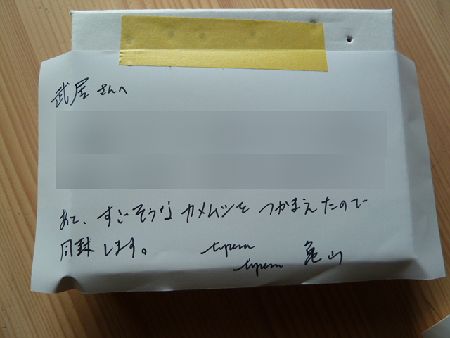 武居さんへ
あと、すごそうなカメムシを つかまえたので
同封します。 亀山